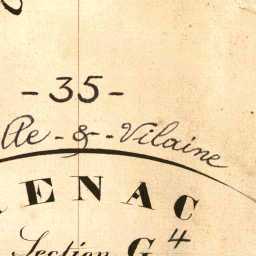 - 35 -
lle - & - Vilaine
ENAC
Section G 4